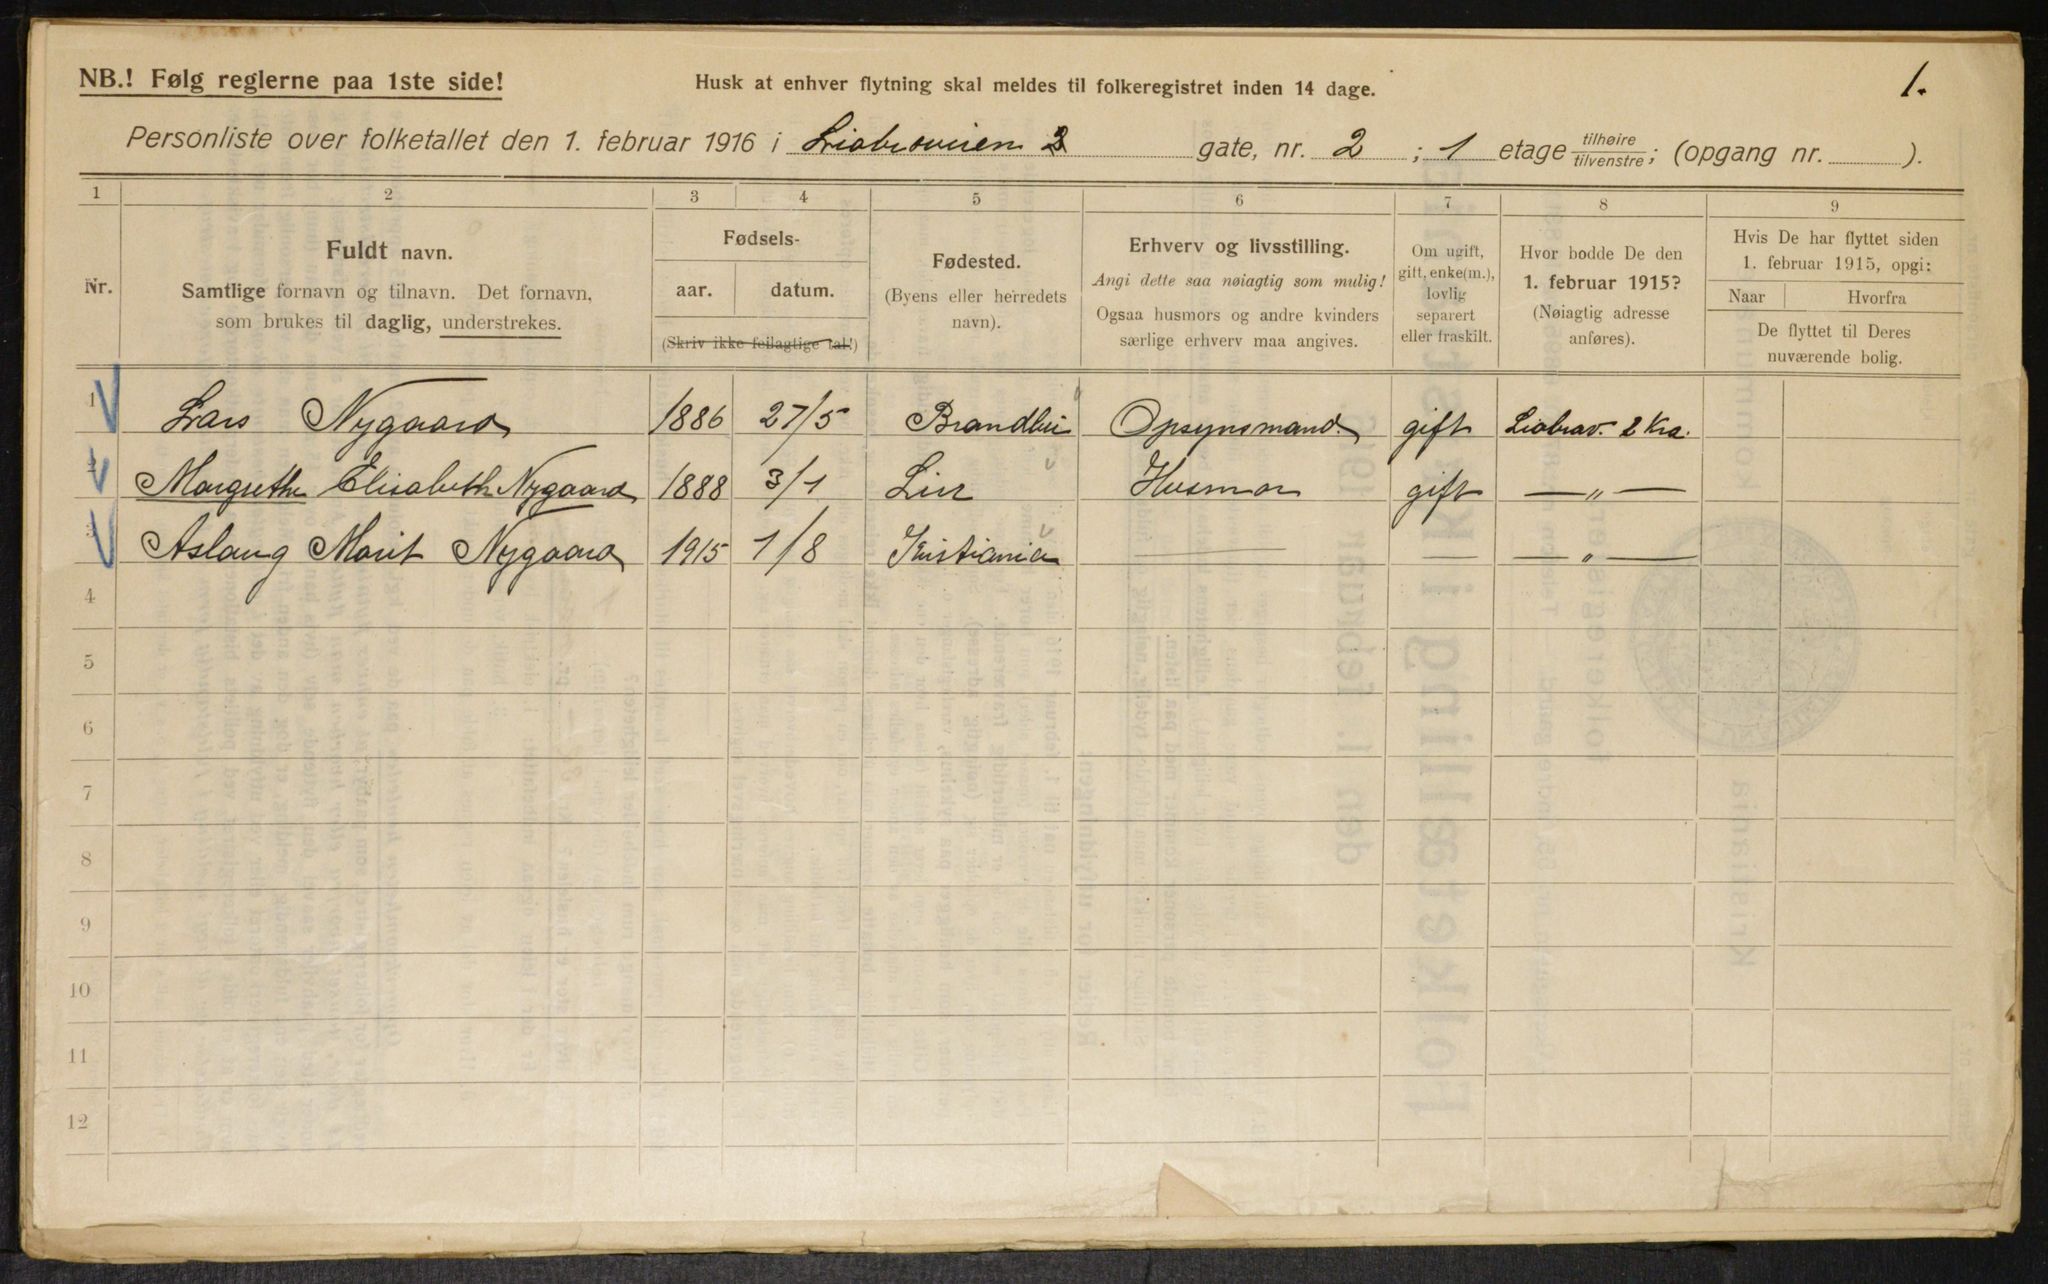 NB.! Følg reglerne paa 1ste side!
Husk at enhver flytning skal meldes til folkeregistret inden 14 dage.
1.
Personliste over folketallet den 1. februar 1916 i Liabroveien gate, nr. 2; 1 etage tilhøire tilvenstre; (opgang nr. ).
1 2 3 4 5 6 7 8 9
Nr.
Fuldt navn.
Samtlige fornavn og tilnavn. Det fornavn,
som brukes til daglig, understrekes.
Fødsels-
aar. datum.
(Skriv ikke feilagtige tal!)
Fødested.
(Byens eller herredets
navn).
Erhverv og livsstilling.
Angi dette saa nøiagtig som mulig!
Ogsaa husmors og andre kvinders
særlige erhverv maa angives.
Om ugift,
gift, enke(m.),
lovlig
separert
eller fraskilt.
Hvor bodde De den
1. februar 1915?
(Nøiagtig adresse
anføres).
Hvis De har flyttet siden
1. februar 1915, opgi:
Naar Hvorfra
De flyttet til Deres
nuværende bolig.
1 Lars Nygaard 1886 27/5 Brandbu Opsynsmand. gift Liabrov. 2 Kra.
2 Margrethe Elisabeth Nygaard 1888 3/1 Lier Husmor gift — „ —
3 Aslaug Marit Nygaard 1915 1/8 Kristiania — — — „ —
4
5
6
7
8
9
10
11
12